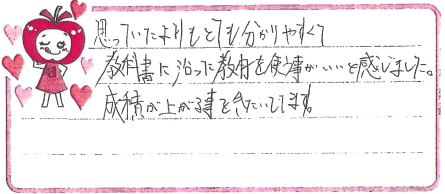 思っていたよりもとても分かりやすくて
教科書に沿った教材を使う事がいいと感じました。
成績が上がる事をきたいしてます。